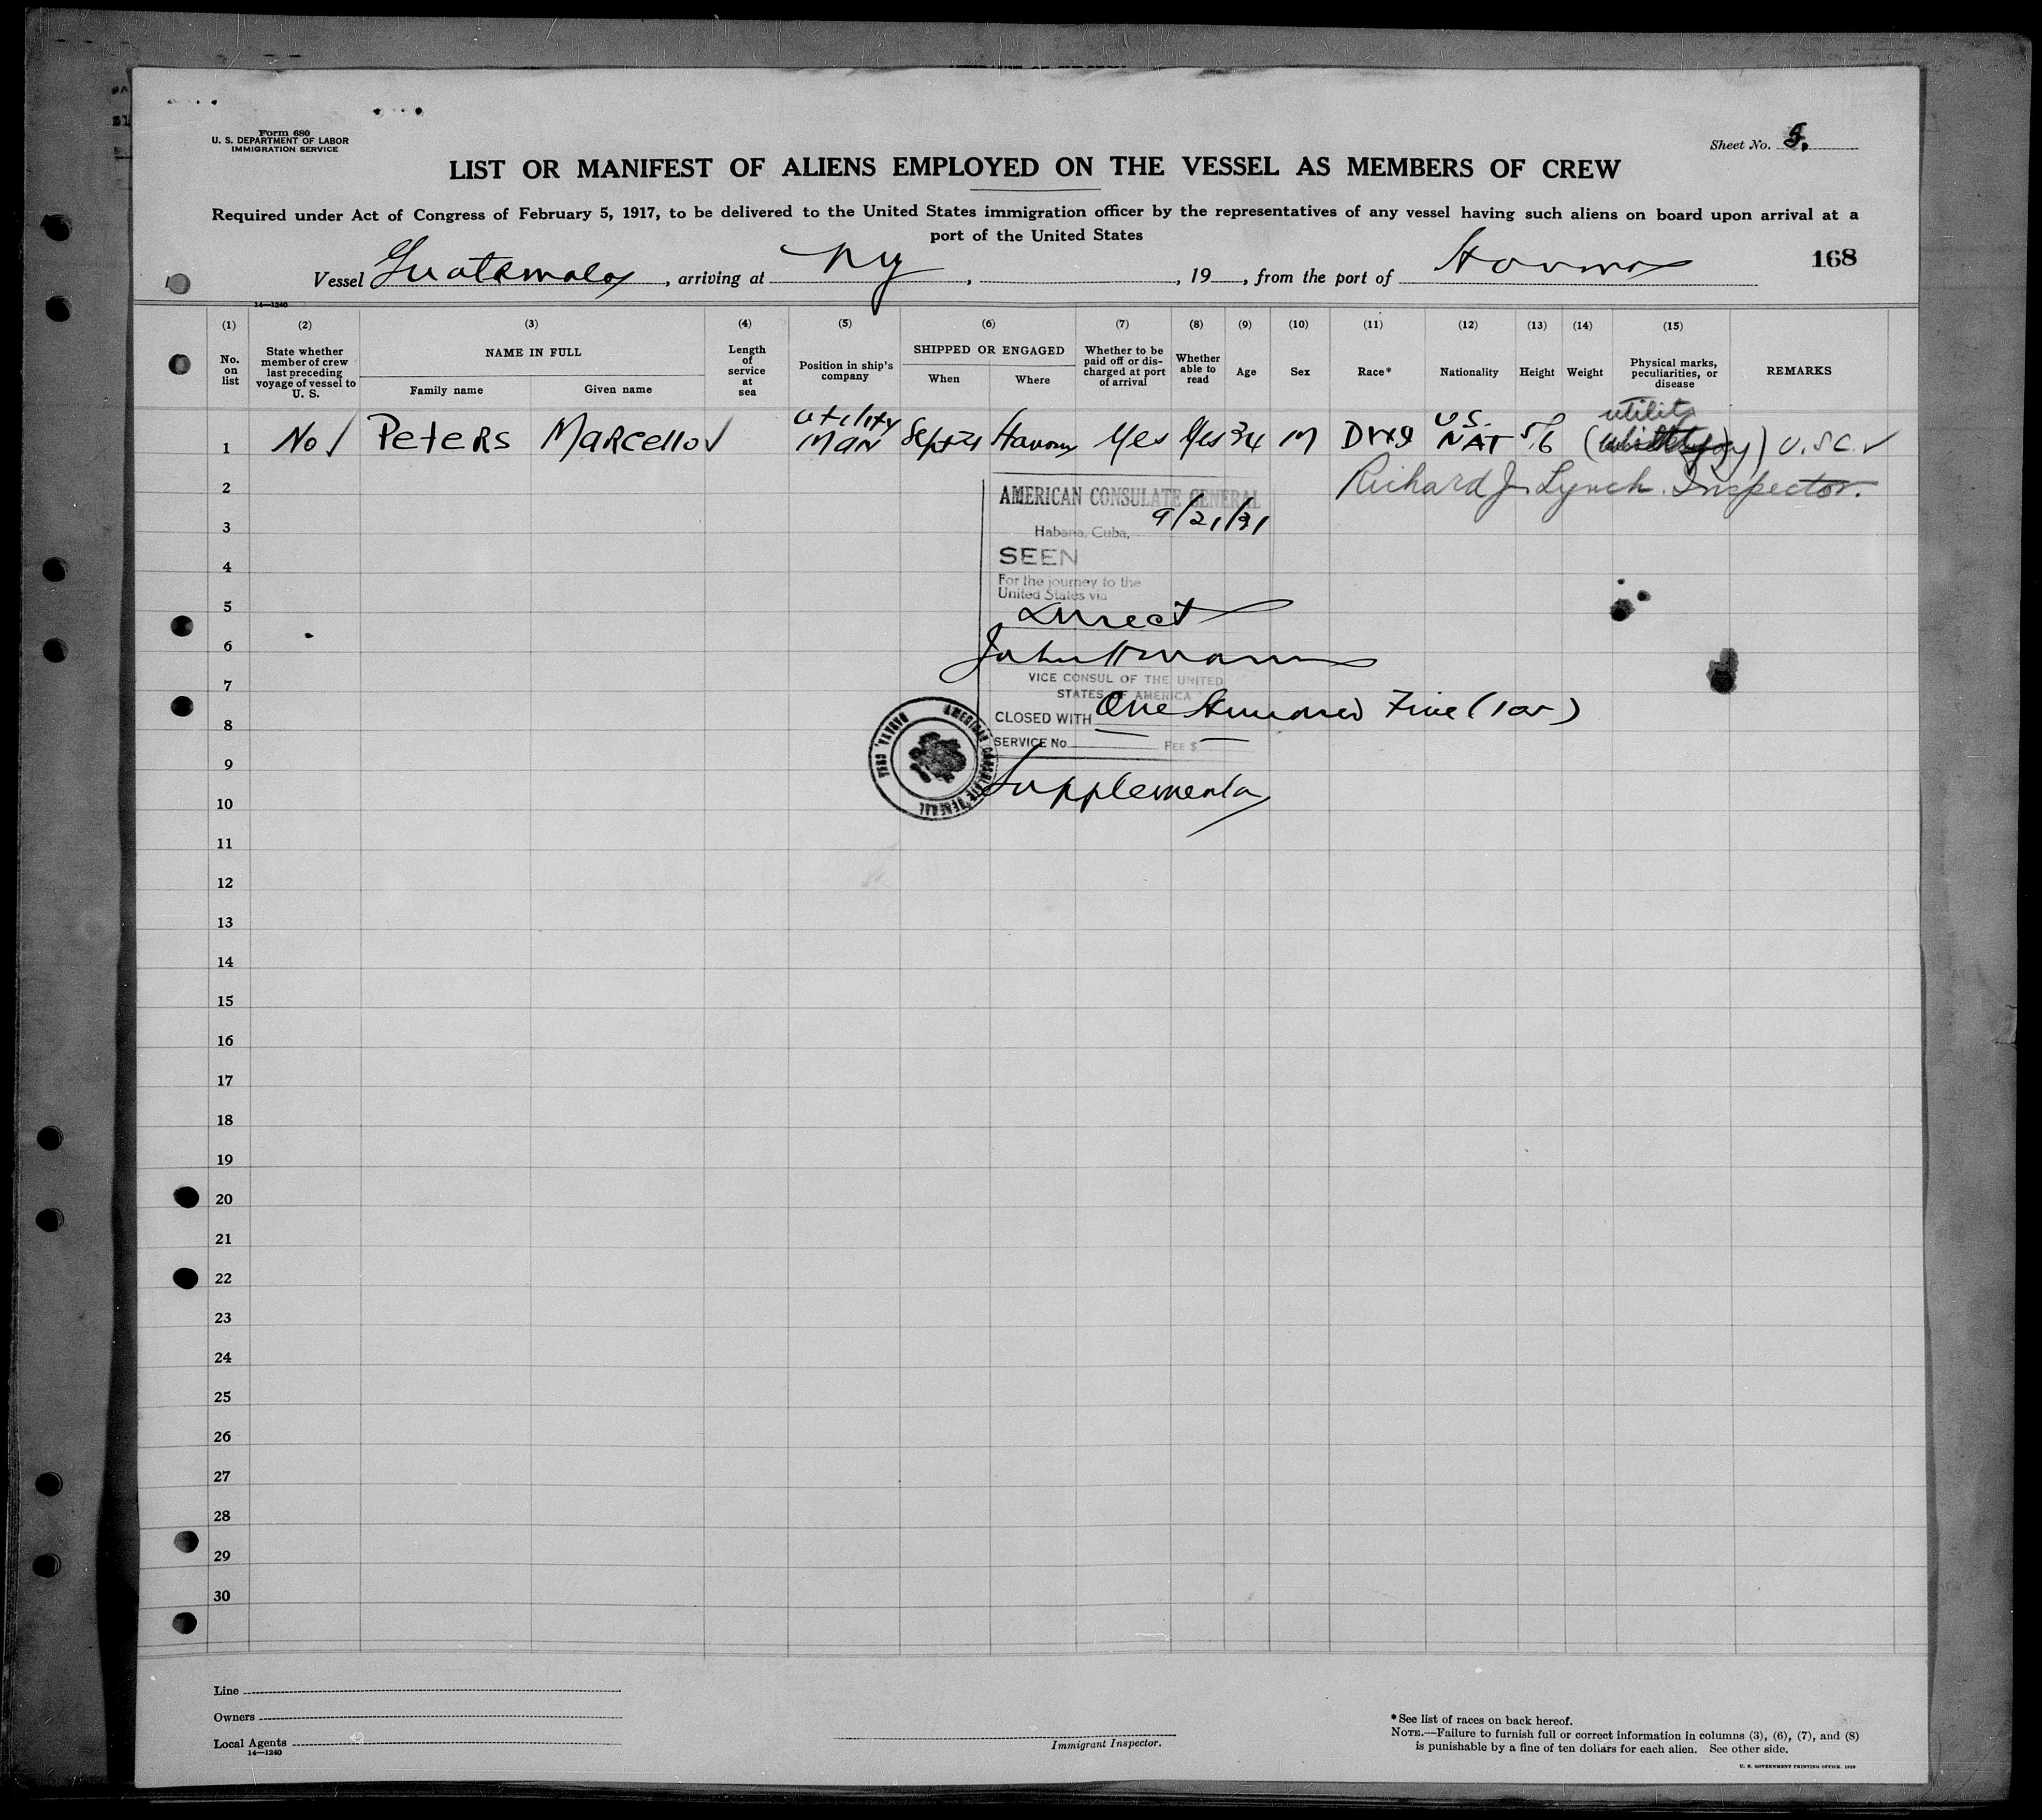 Form 680
U. S. DEPARTMENT OF LABOR
IMMIGRATION SERVICE
Sheet No.
LIST OR MANIFEST OF ALIENS EMPLOYED ON THE VESSEL AS MEMBERS OF CREW
Required under Act of Congress of February 5, 1917, to be delivered to the United States immigration officer by the representatives of any vessel having such aliens on board upon arrival at a
port of the United States
168
Vessel Guatemala, arriving at NY, , 19 , from the port of Havana
14—1240
(1) (2) (3) (4) (5) (6) (7) (8) (9) (10) (11) (12) (13) (14) (15)
No. on list
State whether member of crew last preceding voyage of vessel to U. S.
NAME IN FULL
Family name Given name
Length of service at sea
Position in ship's company
SHIPPED OR ENGAGED
When Where
Whether to be paid off or discharged at port of arrival
Whether able to read
Age
Sex
Race*
Nationality
Height
Weight
Physical marks, peculiarities, or disease
REMARKS
1 No Peters Marcello utility man Sept 21 Havana Yes Yes 34 M U.S. NAT 5/6 utility U.S.C.
2 Richard J. Lynch. Inspector.
AMERICAN CONSULATE GENERAL
3 9/21/31
Habana, Cuba,
SEEN
4
For the journey to the
United States via
5
Direct
6
7
VICE CONSUL OF THE UNITED
STATES OF AMERICA
CLOSED WITH One Hundred Five (105)
8
SERVICE No. FEE $
AMERICAN CONSULATE GENERAL HABANA, CUBA
9
Supplemental
10
11
12
13
14
15
16
17
18
19
20
21
22
23
24
25
26
27
28
29
30
Line
Owners
Local Agents
14—1240
Immigrant Inspector.
*See list of races on back hereof.
NOTE.—Failure to furnish full or correct information in columns (3), (6), (7), and (8)
is punishable by a fine of ten dollars for each alien. See other side.
U. S. GOVERNMENT PRINTING OFFICE.